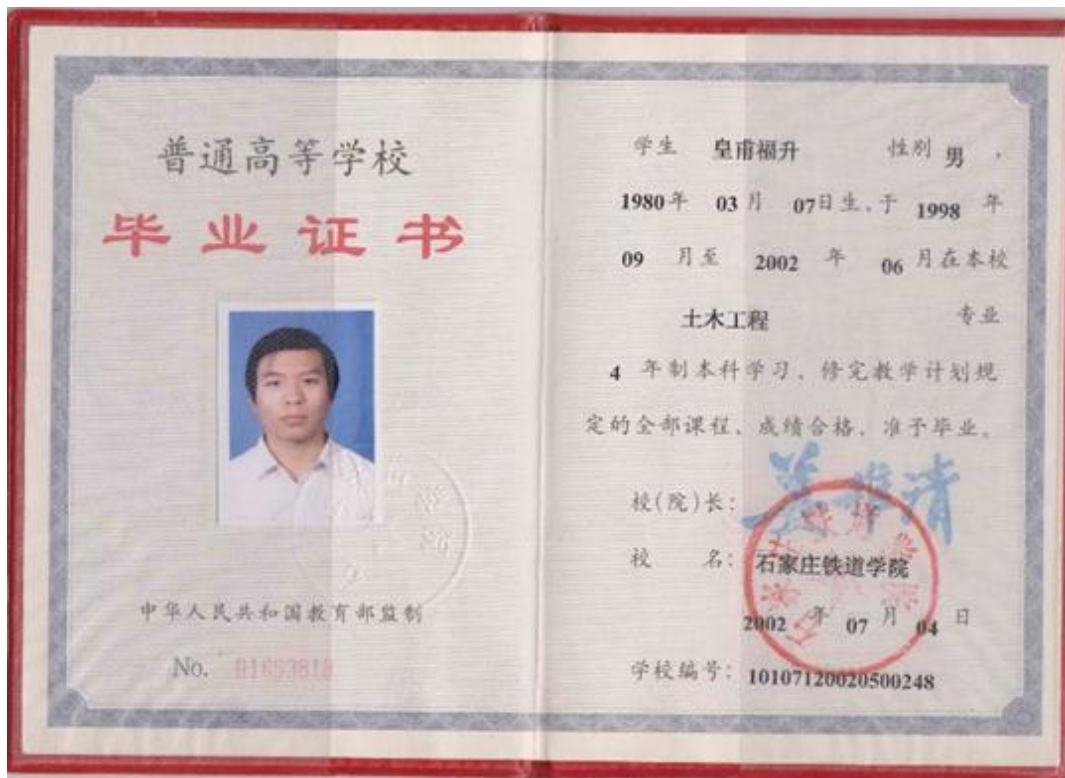 普通高等学校
毕业证书
中华人民共和国教育部监制
No. 01653810
学生 皇甫福升 性别 男 ,
1980年 03月 07日生,于 1998 年
09 月至 2002 年 06 月在本校
土木工程 专业
4 年制本科学习、修完教学计划规
定的全部课程、成绩合格、准予毕业。
校(院)长:
校 名: 石家庄铁道学院
2002 年 07 月 04 日
学校编号: 10107120020500248